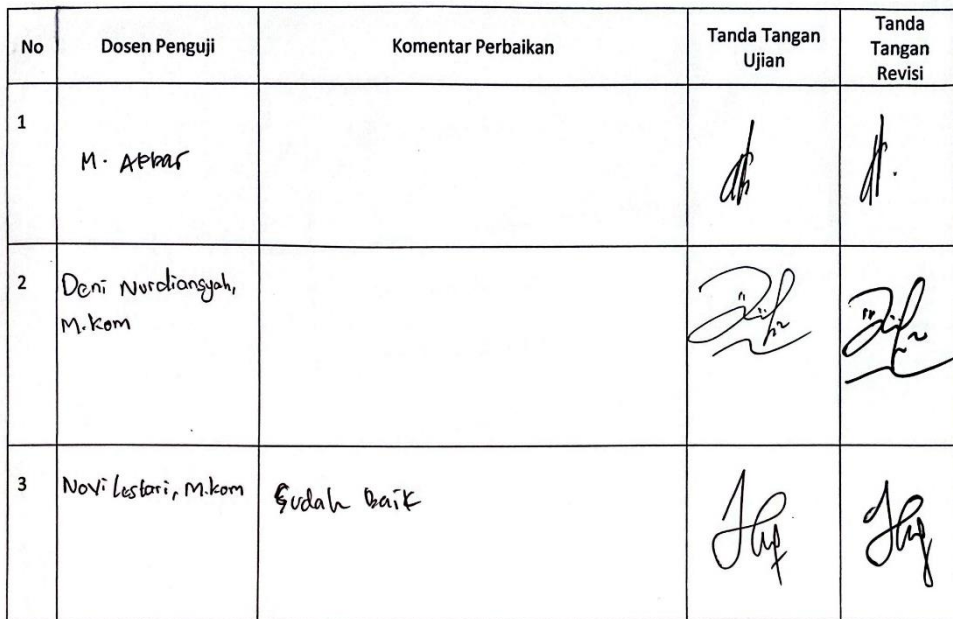 No
Dosen Penguji
Komentar Perbaikan
Tanda Tangan
Ujian
Tanda
Tangan
Revisi
1
M. Akbar
2
Deni Nurdiansyah,
M.kom
3
Novi Lestari, M.kom
Sudah Baik